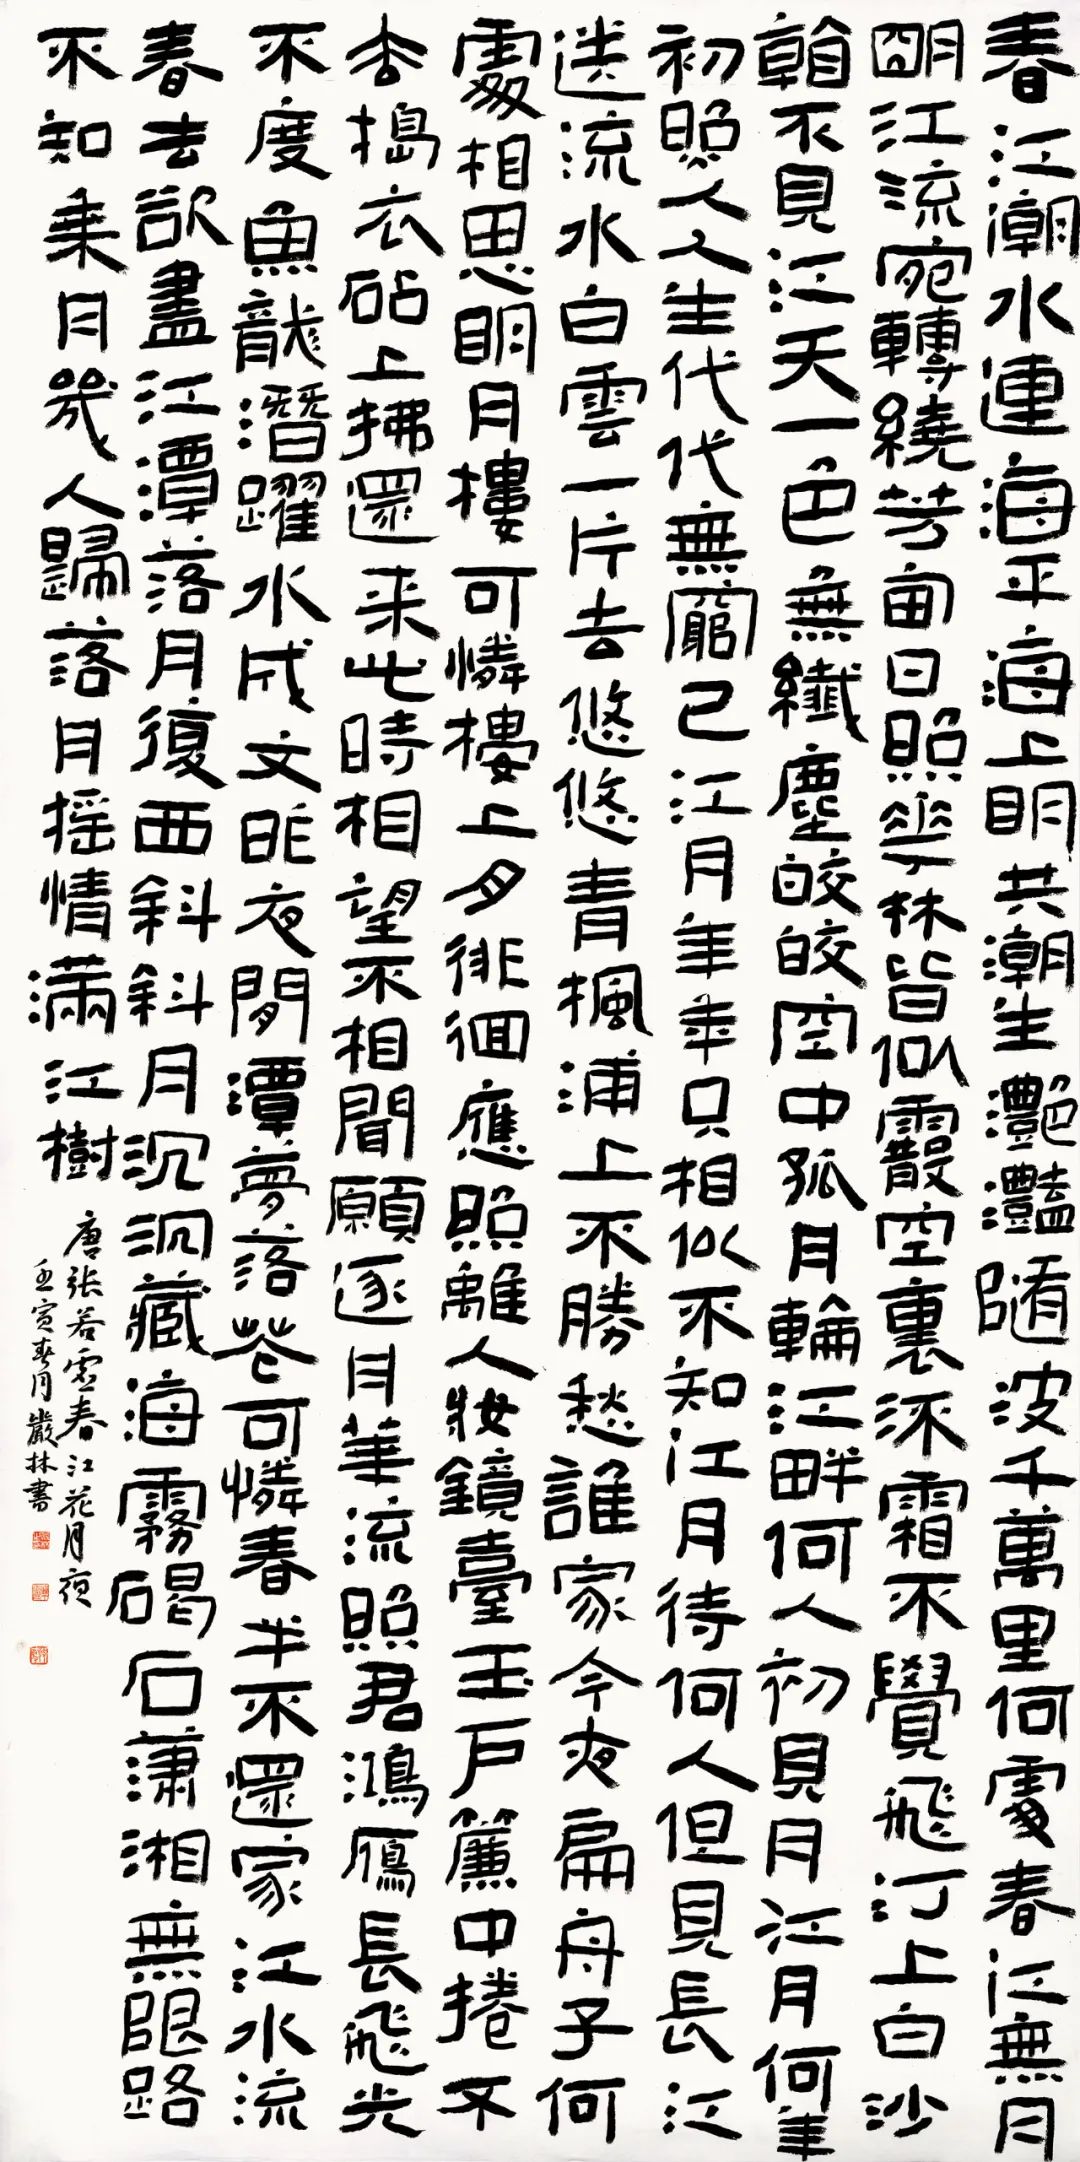 春江潮水連海平海上明共潮生灩灩隨波千萬里何處春江無月
明江流宛轉繞芳甸月照花林皆似霰空裏流霜不覺飛汀上白沙
看不見江天一色無纖塵皎皎空中孤月輪江畔何人初見月江月何年
初照人人生代代無窮已江月年年只相似不知江月待何人但見長江
送流水白雲一片去悠悠青楓浦上不勝愁誰家今夜扁舟子何
處相思明月樓可憐樓上月徘徊應照離人妝鏡臺玉戶簾中捲不
去搗衣砧上拂還来此時相望不相聞願逐月華流照君鴻雁長飛光
不度魚龍潛躍水成文昨夜閒潭夢落花可憐春半不還家江水流
春去欲盡江潭落月復西斜斜月沉沉藏海霧碣石瀟湘無限路
不知乘月幾人歸落月搖情滿江樹
唐張若虛春江花月夜
壬寅春月嚴林書